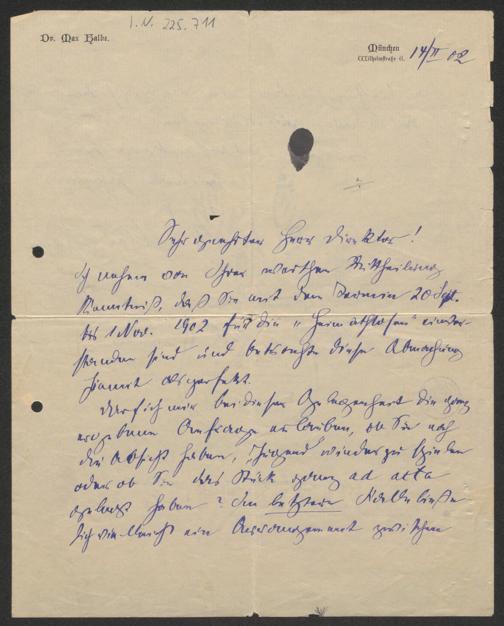 I. N. 225.711
Dr. Max Halbe.
München
Wilhelmstraße
14/II 02
Sehr geehrter Herr Direktor!
Ich nehme von Ihrer werthen Mittheilung
Kenntniß, daß Sie mit dem Termin 20 Sept.
bis 1 Nov. 1902 für die "Heimathlosen" einver-
standen sind und betrachte diese Abmachung
somit als perfekt.
Darf ich mir bei dieser Gelegenheit die ganz
ergebene Anfrage erlauben, ob Sie noch
die Absicht haben, "Jugend" wieder zu
oder ob Sie das Stück ganz ad acta
gelegt haben? Im letzteren Falle ließe
sich vielleicht ein Arrangement zwischen